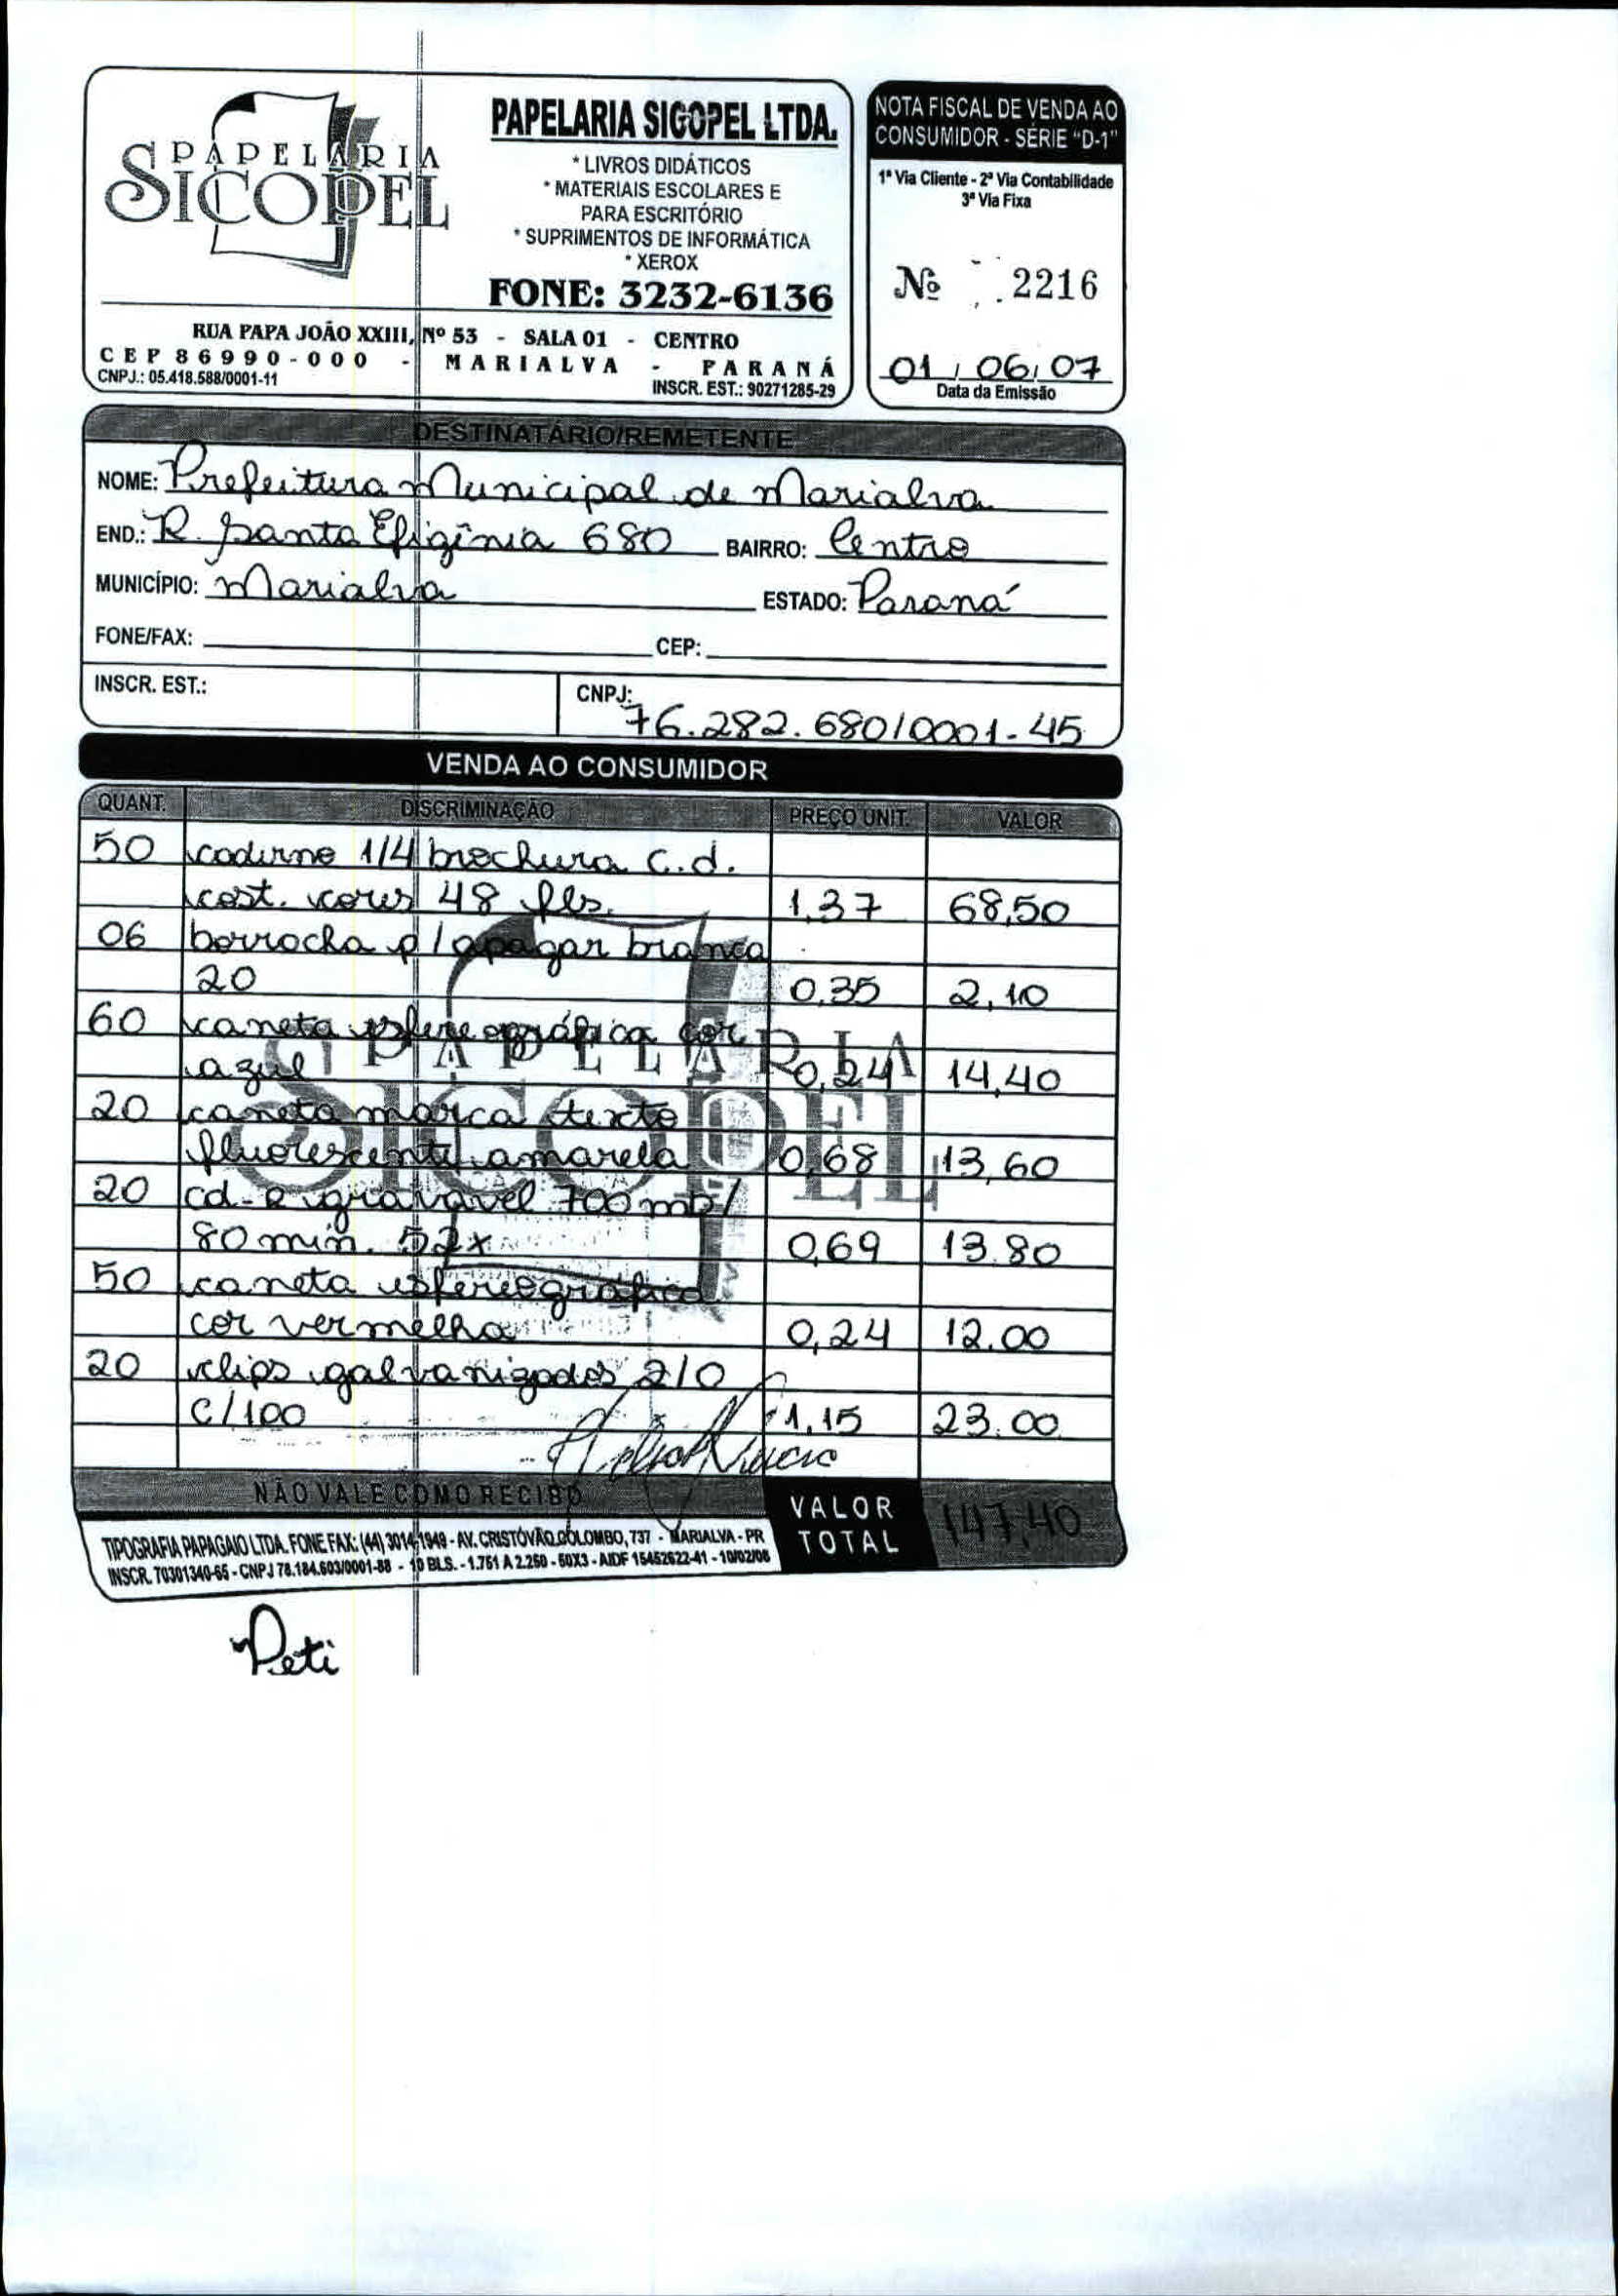 PAPELARIA
SICOPEL
PAPELARIA SICOPEL LTDA.
* LIVROS DIDÁTICOS
* MATERIAIS ESCOLARES E
PARA ESCRITÓRIO
* SUPRIMENTOS DE INFORMÁTICA
* XEROX
FONE: 3232-6136
RUA PAPA JOÃO XXIII, Nº 53 - SALA 01 - CENTRO
CEP 86990-000 - MARIALVA - PARANÁ
CNPJ.: 05.418.588/0001-11 INSCR. EST.: 90271285-29
NOTA FISCAL DE VENDA AO
CONSUMIDOR - SÉRIE "D-1"
1ª Via Cliente - 2ª Via Contabilidade
3ª Via Fixa
Nº 2216
01/06/07
Data da Emissão
DESTINATÁRIO/REMETENTE
NOME: Prefeitura Municipal de Marialva
END.: R. Santa Efigênia 680 BAIRRO: Centro
MUNICÍPIO: Marialva ESTADO: Paraná
FONE/FAX: CEP:
INSCR. EST.: CNPJ: 76.282.680/0001-45
VENDA AO CONSUMIDOR
QUANT. DISCRIMINAÇÃO PREÇO UNIT. VALOR
50 caderno 1/4 brochura c.d.
cost. cores 48 fls. 1,37 68,50
06 borracha p/ apagar branca
20 0,35 2,10
60 caneta esfereográfica cor
azul 0,24 14,40
20 caneta marca texto
fluorescente amarela 0,68 13,60
20 cd-R gravável 700 mb/
80 min. 52x 0,69 13.80
50 caneta esfereográfica
cor vermelha 0,24 12.00
20 clips galvanizados 2/0
c/100 1,15 23.00
NÃO VALE COMO RECIBO
VALOR
TOTAL 147,40
TIPOGRAFIA PAPAGAIO LTDA. FONE FAX: (44) 3014-1949 - AV. CRISTÓVÃO COLOMBO, 737 - MARIALVA - PR
INSCR. 70301340-65 - CNPJ 78.184.603/0001-88 - 10 BLS. - 1.751 A 2.250 - 50X3 - AIDF 15452622-41 - 10/02/06
Peti